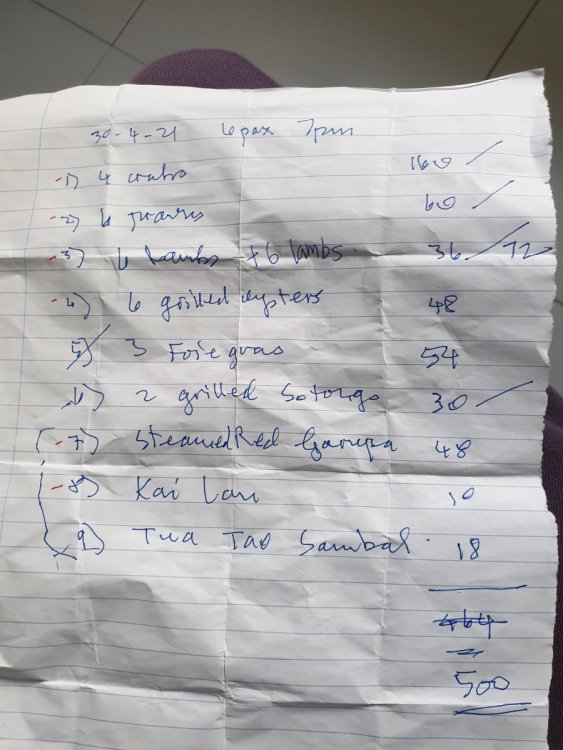 30-4-21 6pax 7pm
1) 4 crabs 160
2) 6 prawns 60
3) 6 lambs +6 lambs. 36 / 72
4) 6 grilled oysters 48
5) 3 Foie gras 54
6) 2 grilled Sotongs 30
7) Steamed Red Garupa 48
8) Kai Lan 10
9) Tua Tao Sambal. 18
464
500